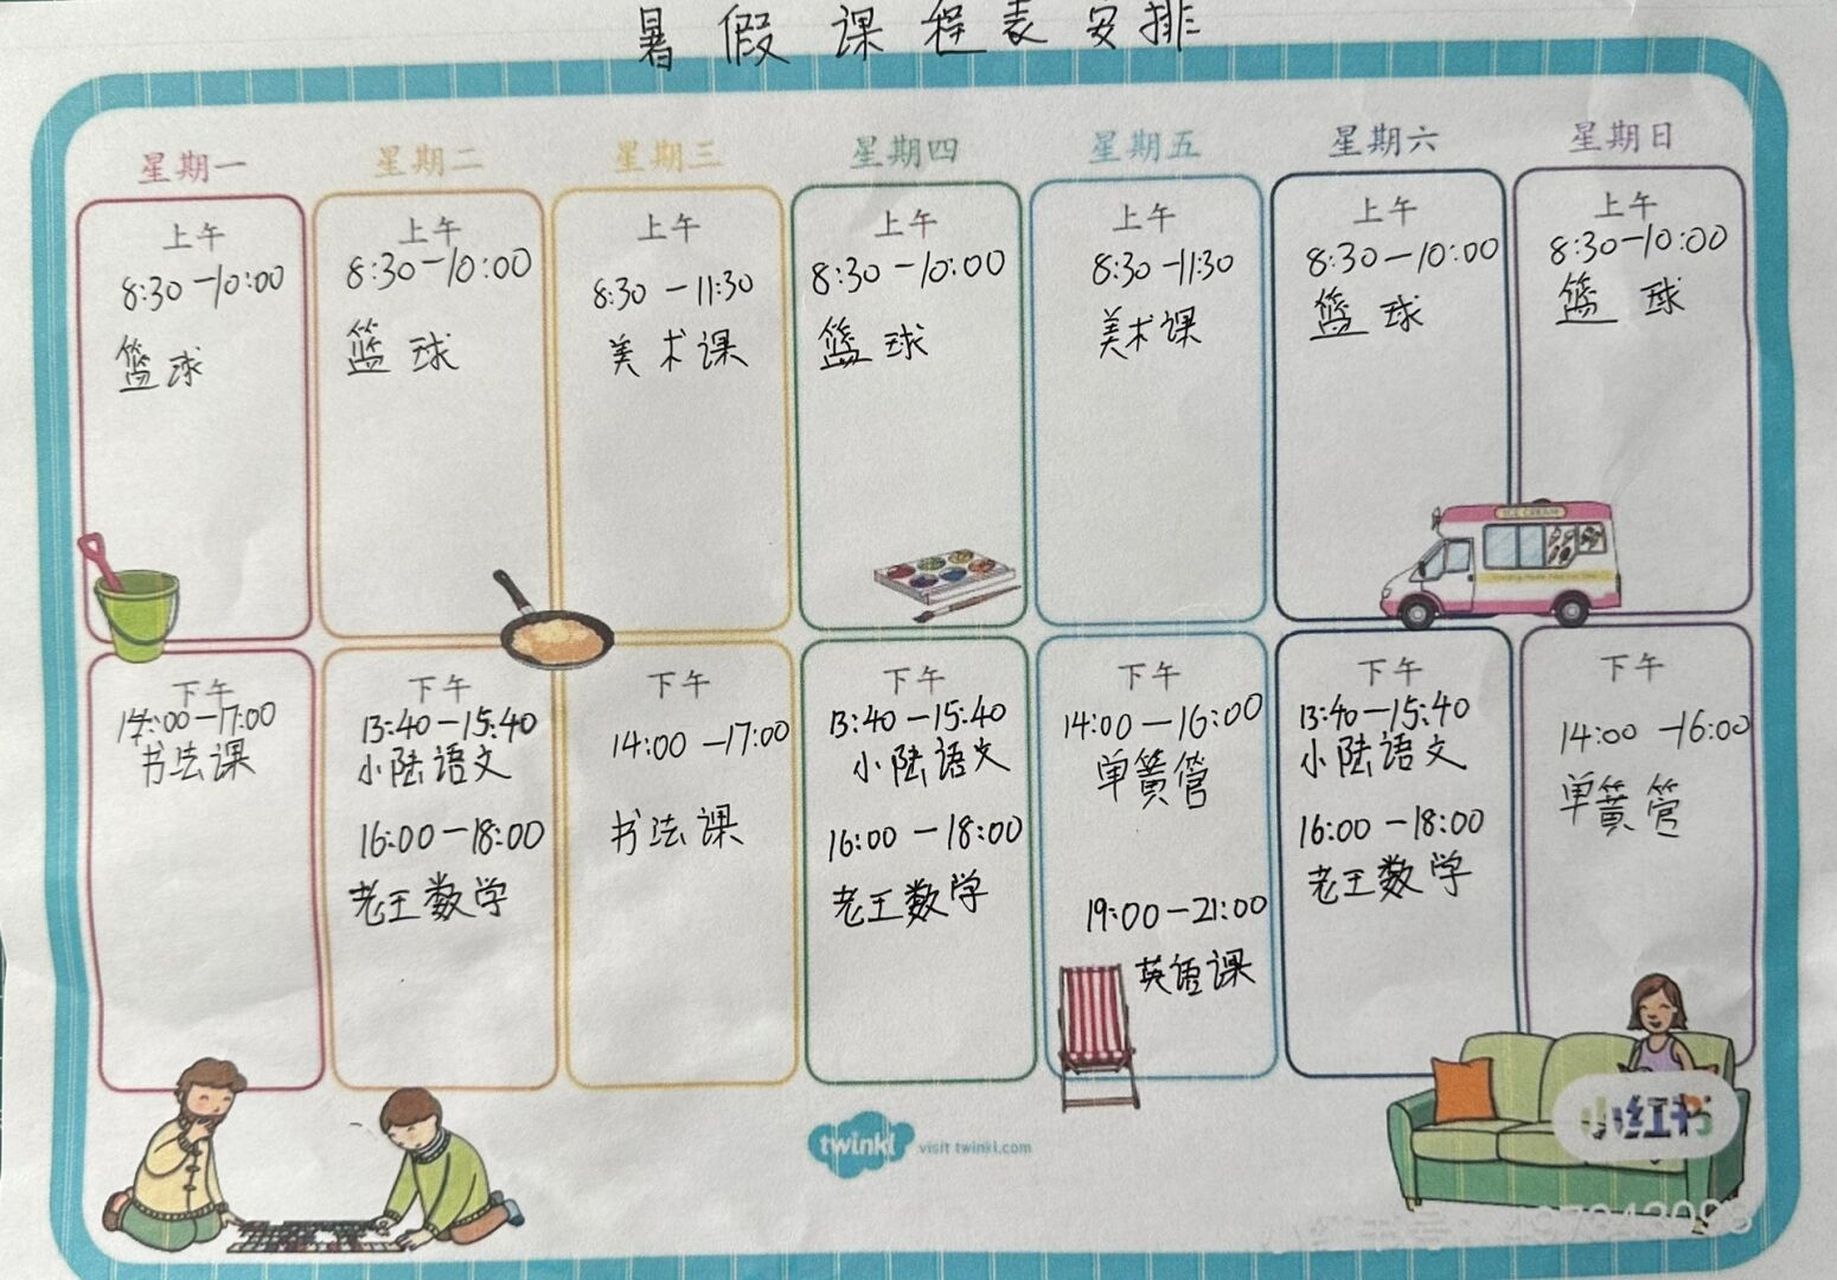 暑假课程表安排
星期一
上午
8:30-10:00
篮球
下午
14:00-17:00
书法课
星期二
上午
8:30-10:00
篮球
下午
13:40-15:40
小陆语文
16:00-18:00
老王数学
星期三
上午
8:30-11:30
美术课
下午
14:00-17:00
书法课
星期四
上午
8:30-10:00
篮球
下午
13:40-15:40
小陆语文
16:00-18:00
老王数学
星期五
上午
8:30-11:30
美术课
下午
14:00-16:00
单簧管
19:00-21:00
英语课
星期六
上午
8:30-10:00
篮球
下午
13:40-15:40
小陆语文
16:00-18:00
老王数学
星期日
上午
8:30-10:00
篮球
下午
14:00-16:00
单簧管
ICE CREAM
twinkl visit twinkl.com
小红书